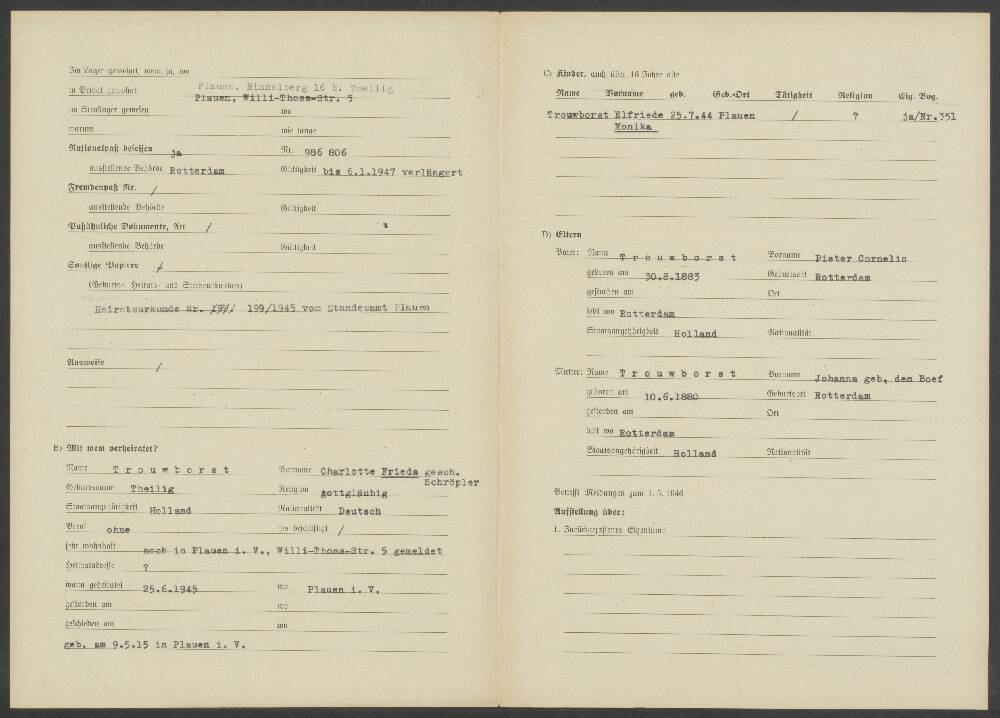 Im Lager gewohnt, wenn ja, wo
in Privat gewohnt Plauen, Rinnelberg 16 b. Theilig
Plauen, Willi-Thoss-Str. 5
im Straflager gewesen wo
warum wie lange
Nationalpaß besessen ja Nr. 986 806
ausstellende Behörde Rotterdam Gültigkeit bis 6.1.1947 verlängert
Fremdenpaß Nr. /
ausstellende Behörde Gültigkeit
Paßähnliche Dokumente, Art /
ausstellende Behörde Gültigkeit
Sonstige Papiere /
(Geburts-, Heirats- und Sterbeurkunden)
Heiratsurkunde Nr. 199/1945 vom Standesamt Plauen
Ausweise /
B) Mit wem verheiratet?
Name Trouwborst Vorname Charlotte Frieda gesch. Schröpler
Geburtsname Theilig Religion gottgläubig
Staatsangehörigkeit Holland Nationalität Deutsch
Beruf ohne wo beschäftigt /
jetzt wohnhaft noch in Plauen i. V., Willi-Thoss-Str. 5 gemeldet
Heimatadresse ?
wann geheiratet 25.6.1945 wo Plauen i. V.
gestorben am wo
geschieden am wo
geb. am 9.5.15 in Plauen i. V.
C) Kinder, auch über 16 Jahre alte
Name Vorname geb. Geb.-Ort Tätigkeit Religion Eig. Bog.
Trouwborst Elfriede 25.7.44 Plauen / ? ja/Nr.351
Monika
D) Eltern
Vater: Name Trouwborst Vorname Pieter Cornelio
geboren am 30.8.1883 Geburtsort Rotterdam
gestorben am Ort
lebt wo Rotterdam
Staatsangehörigkeit Holland Nationalität
Mutter: Name Trouwborst Vorname Johanna geb. den Boef
geboren am 10.6.1880 Geburtsort Rotterdam
gestorben am Ort
lebt wo Rotterdam
Staatsangehörigkeit Holland Nationalität
Betrifft Meldungen zum 1. 5. 1946
Aufstellung über:
1. Zurückgelassenes Eigentum: